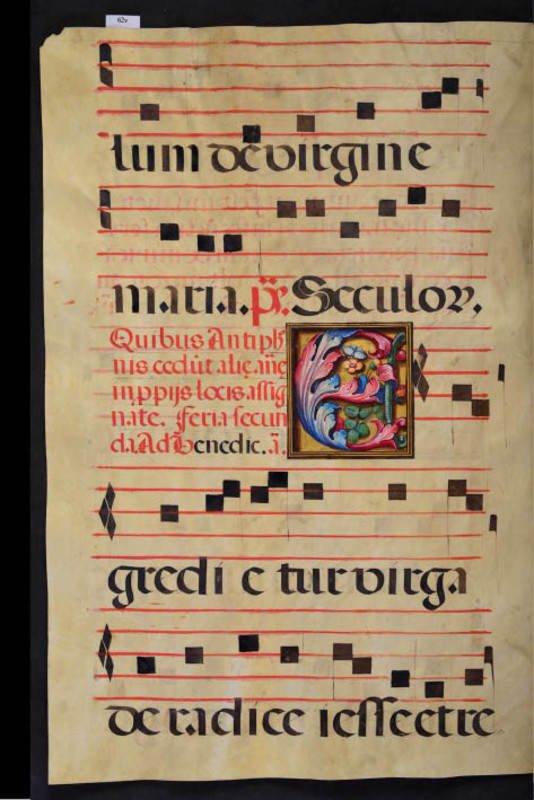 62v
tum de virgine
maria. ps. Seculor.
Quibus Antiph
nis cedūt alię. añę
in ppijs locis. assig
nate. Feria secun
da. Ad Benedic. ã.
E
gredi e tur virga
de radice iesse et re